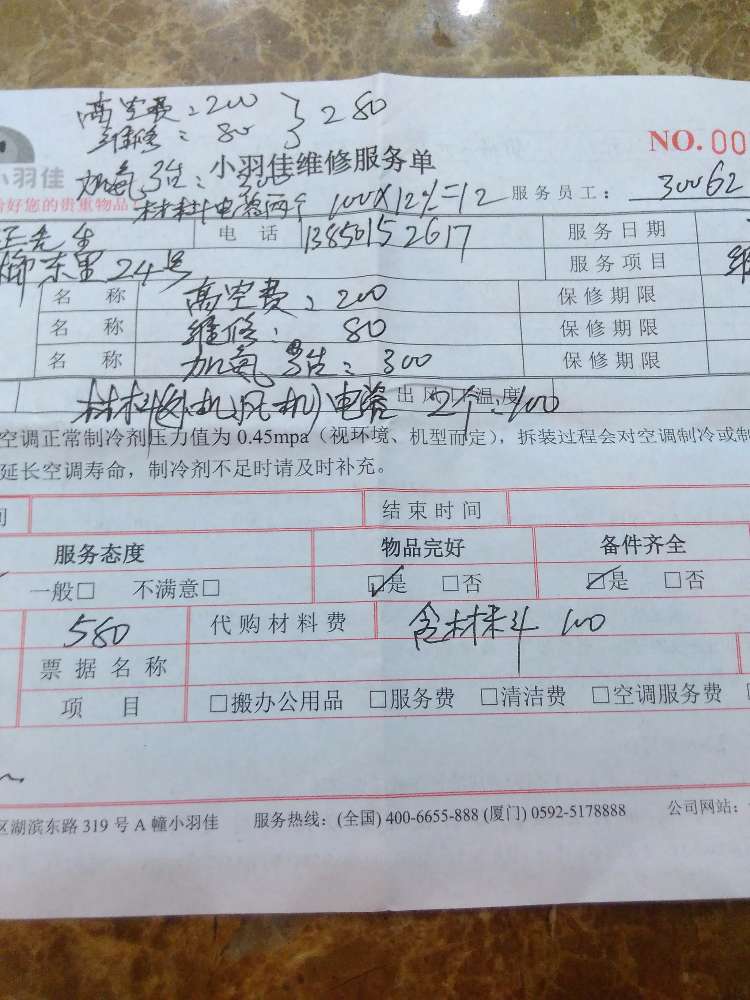 高空费:200 } 280
维修:80
NO.00
小羽佳
小羽佳维修服务单
加氨 3估:300
好您的贵重物品
材料电容两个 100×12%=12 服务员工: 30062
王先生 电 话 13850152617 服务日期
东里24号 服务项目 维
名 称 高空费:200 保修期限
名 称 维修:80 保修期限
名 称 加氨 300 保修期限
材料(外机风机)电容 2个:100 出风口温度
空调正常制冷剂压力值为 0.45mpa(视环境、机型而定),拆装过程会对空调制冷或制
延长空调寿命,制冷剂不足时请及时补充。
间 结束时间
服务态度 物品完好 备件齐全
一般□ 不满意□ ☑是 □否 ☑是 □否
580 代购材料费 含材料 100
票据名称
项 目 □搬办公用品 □服务费 □清洁费 □空调服务费
区湖滨东路 319 号 A 幢小羽佳 服务热线:(全国) 400-6655-888 (厦门) 0592-5178888 公司网站: